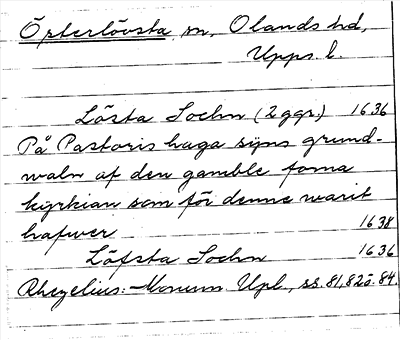 Österlövsta sn, Olands hd,
Upps. l.
Lösta Sochn (2 ggr.) 1636
På Pastoris haga syns grund-
waln af den gamble forna
kyrkian som för denne warit
hafwer 1638
Löfsta Sochn 1636
Rhezelius: Monum. Upl., ss. 81, 82 o. 84.